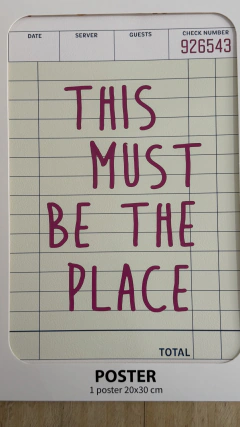 DATE SERVER GUESTS CHECK NUMBER
926543
THIS
MUST
BE THE
PLACE
TOTAL
POSTER
1 poster 20x30 cm